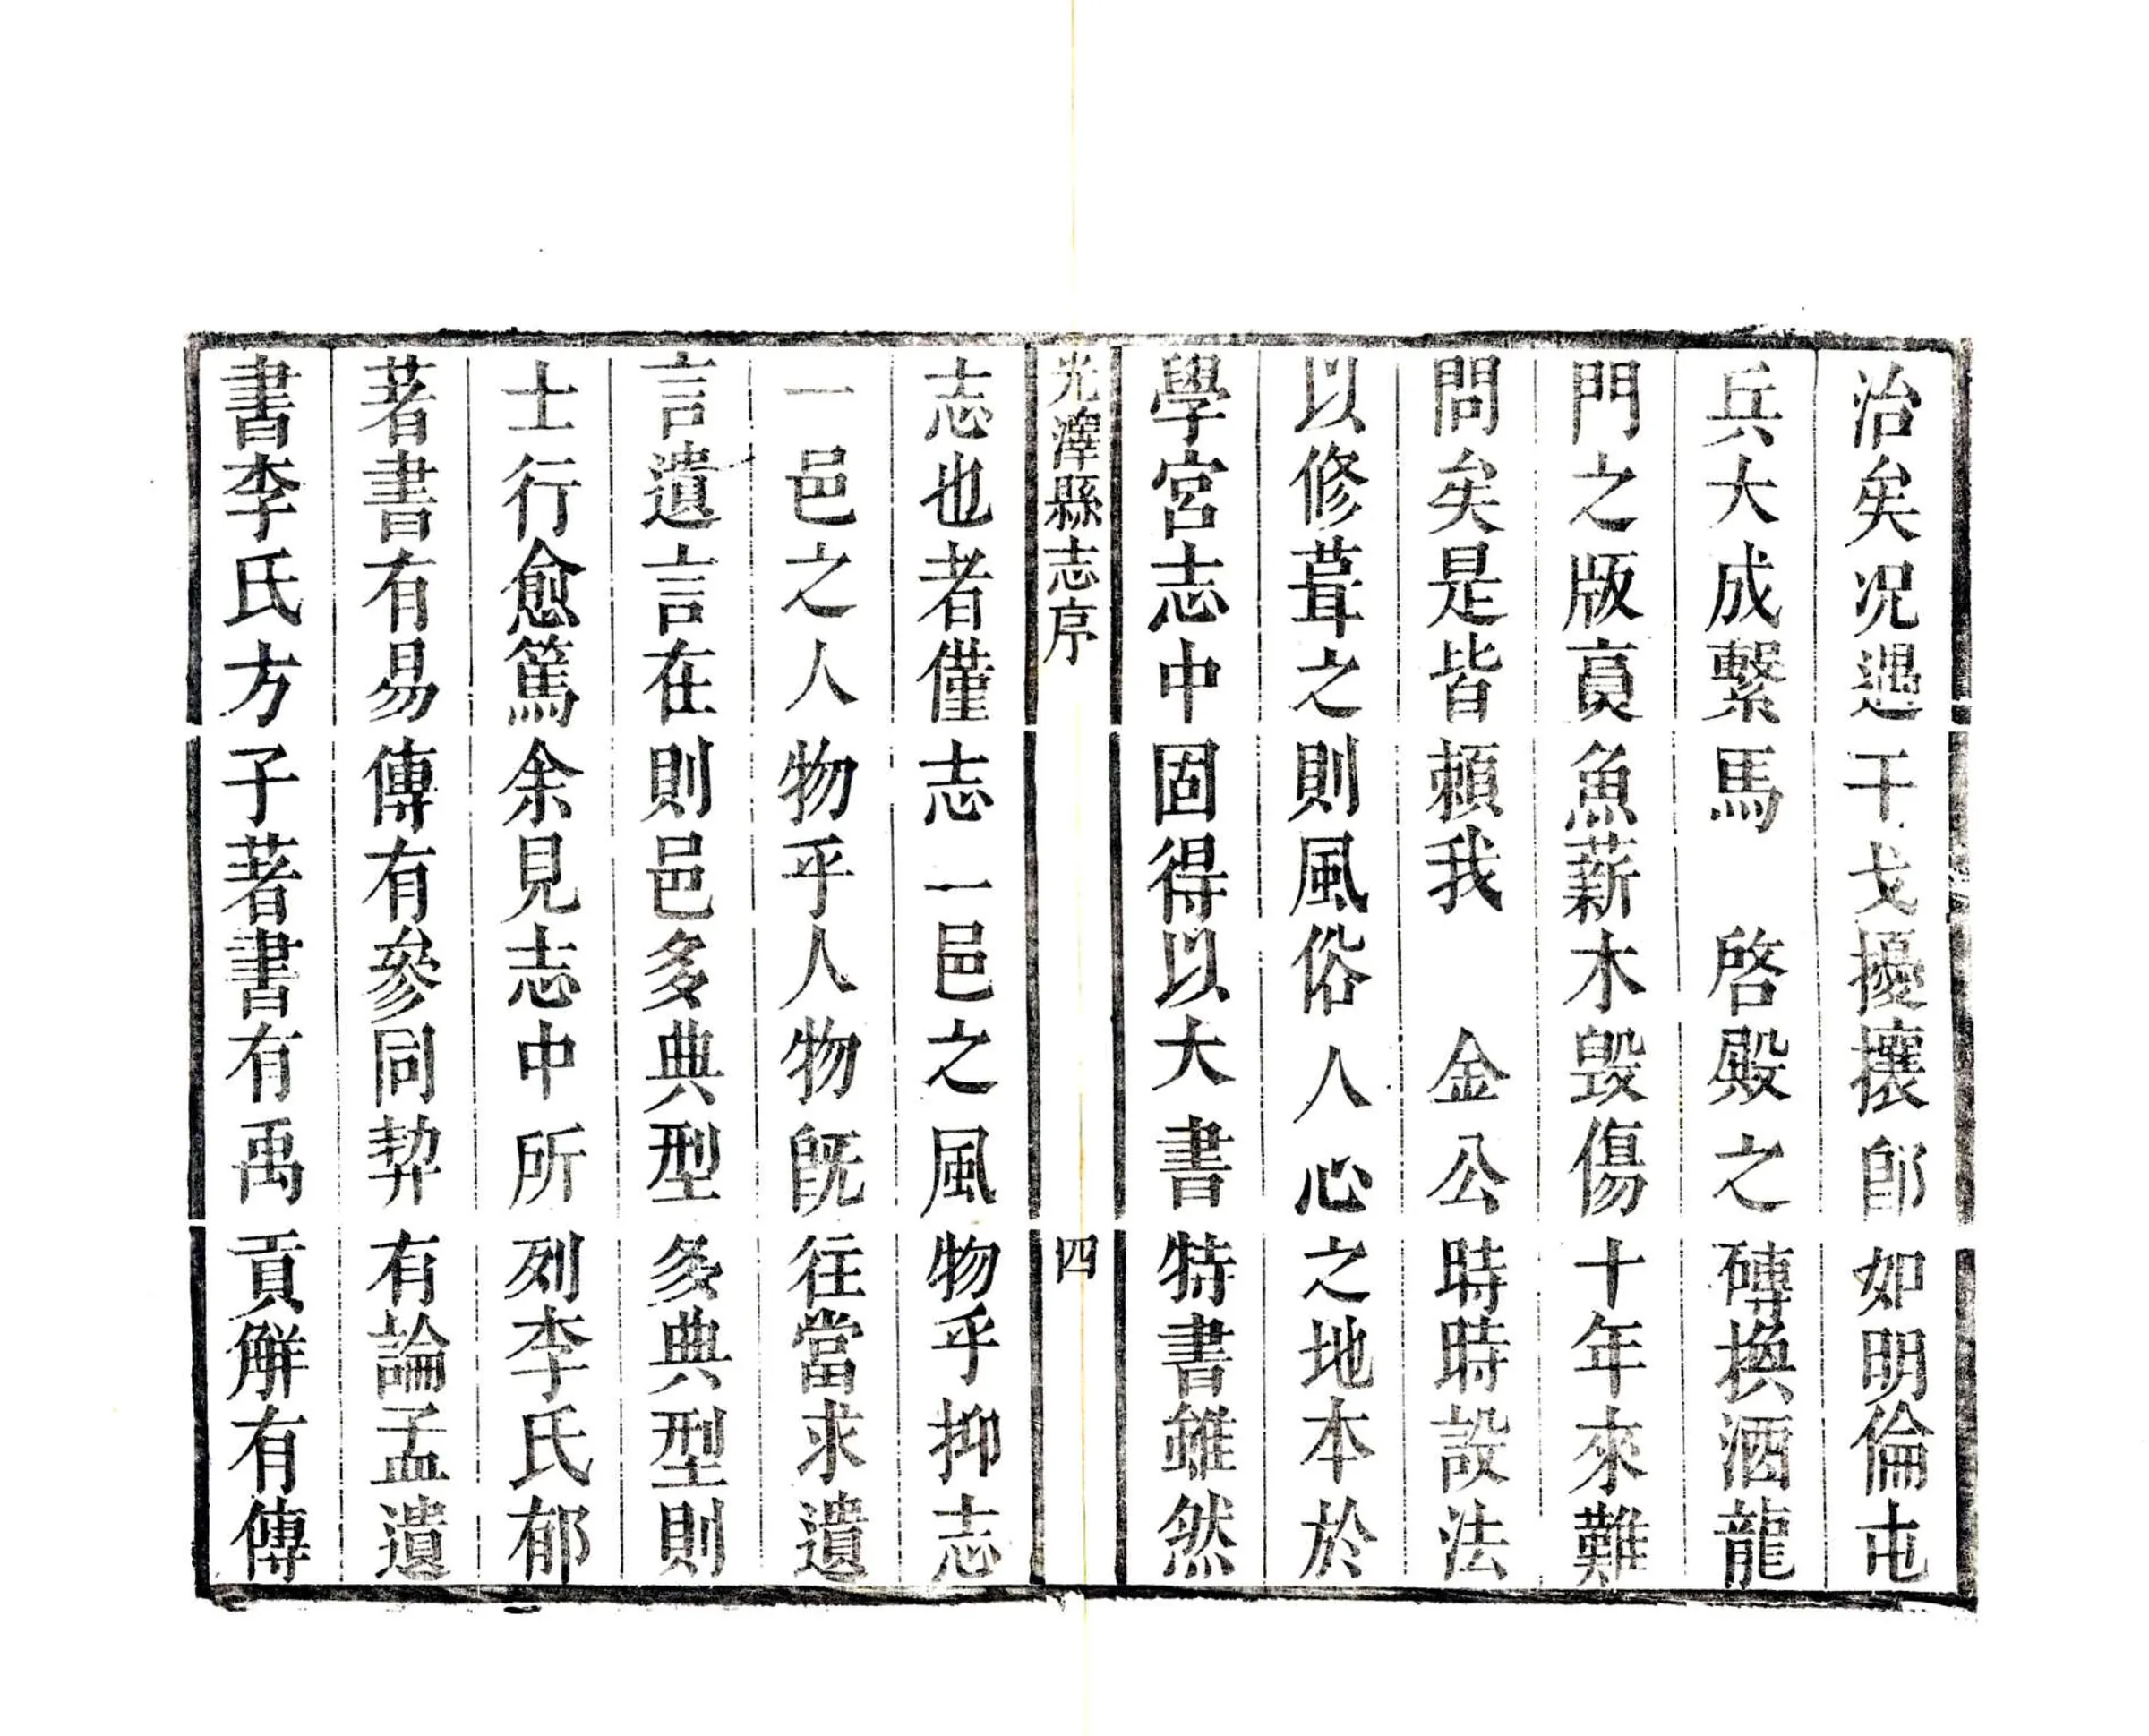 治矣况遇干戈擾攘卽如明倫屯
兵大成繫馬　啓殿之磚換酒龍
門之版烹魚薪木毁傷十年來難
問矣是皆頼我　金公時時設法
以修葺之則風俗人心之地本於
學宮志中固得以大書特書雖然
光澤縣志序　四
志也者僅志一邑之風物乎抑志
一邑之人物乎人物旣往當求遺
言遺言在則邑多典型多典型則
士行愈篤余見志中所列李氏郁
著書有易傳有參同契有論孟遺
書李氏方子著書有禹貢解有傳